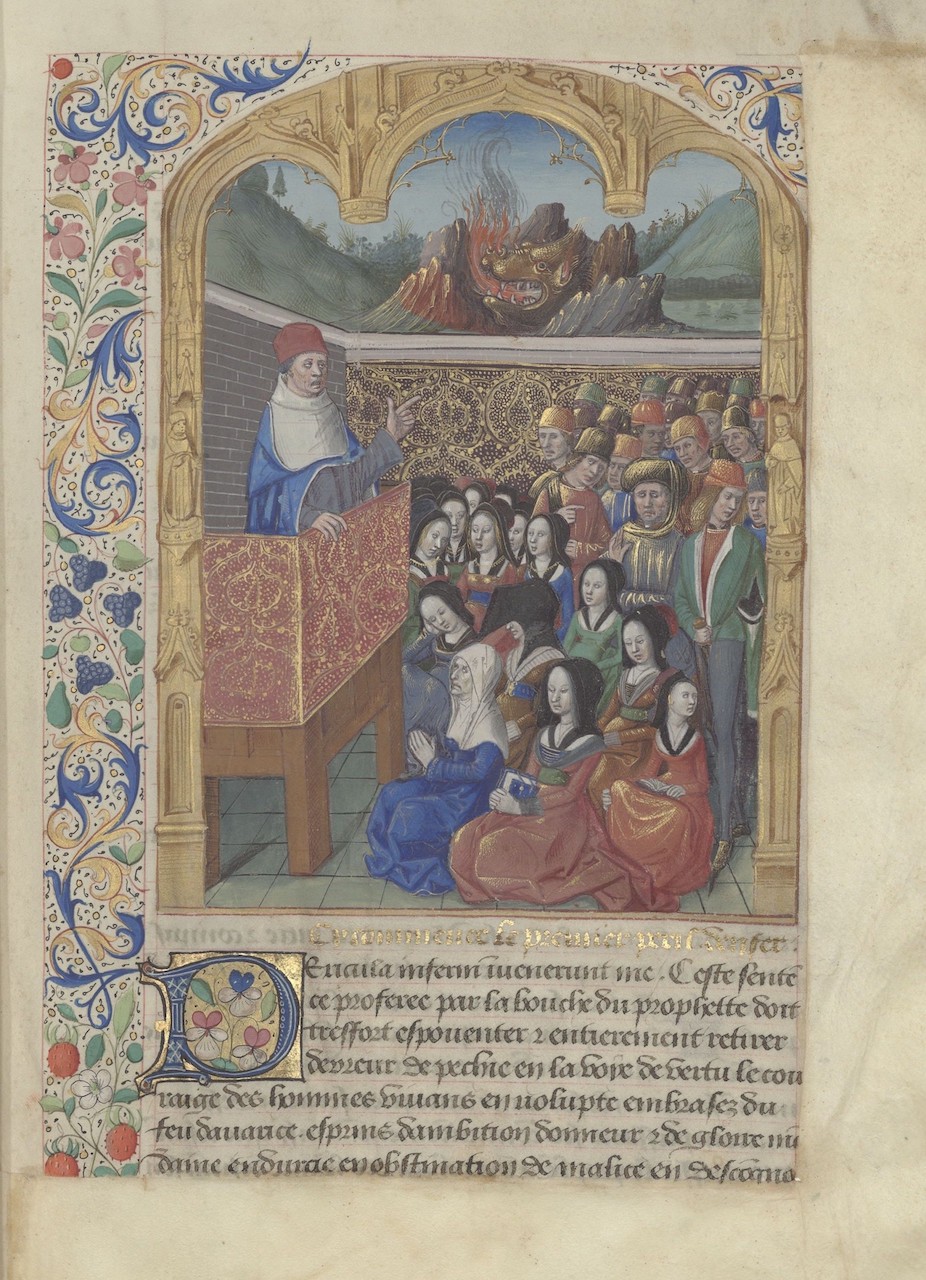 Cy commence le premier peril denfer
Pericula inferni iuenerunt me. Ceste sente
ce proferee par la bouche du prophette doit
tresfort espouenter ⁊ entierement retirer
derreur de pechie en la voye de vertu le cou
raige des hommes viuans en volupte embrasez du
feu dauarice. esprins dambition donneur ⁊ de gloire mu
daine endurcie en obstination de malice en